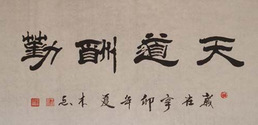 天道酬勤
歲在辛卯年夏木